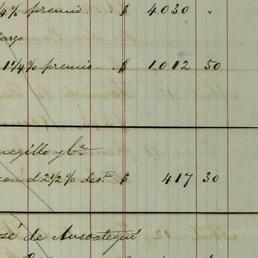 4% premio $ 4030 "
cargo
1 1/4% premio $ 1,012 50
y Ca
con el 2 1/2% desto $ 417 30
José de Ansoategui